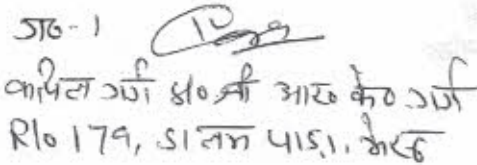 ग0-1
कपिल गर्ग S/o श्री आर0 के0 गर्ग
R/o 179, डालम पाड़ा, मेरठ